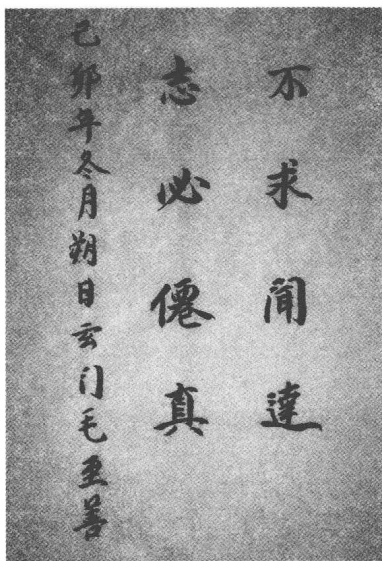 不求闻達
志必僊真
己卯年冬月朔日玄门毛至善